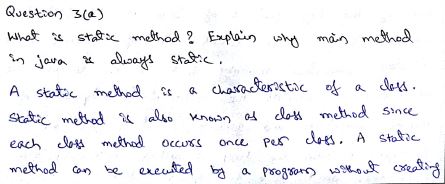 Question 3(a)
What is static method? Explain why main method
in java is always static.
A static method is a characteristic of a class.
Static method is also known as class method since
each class method occurs once per class. A static
method can be executed by a program without creating